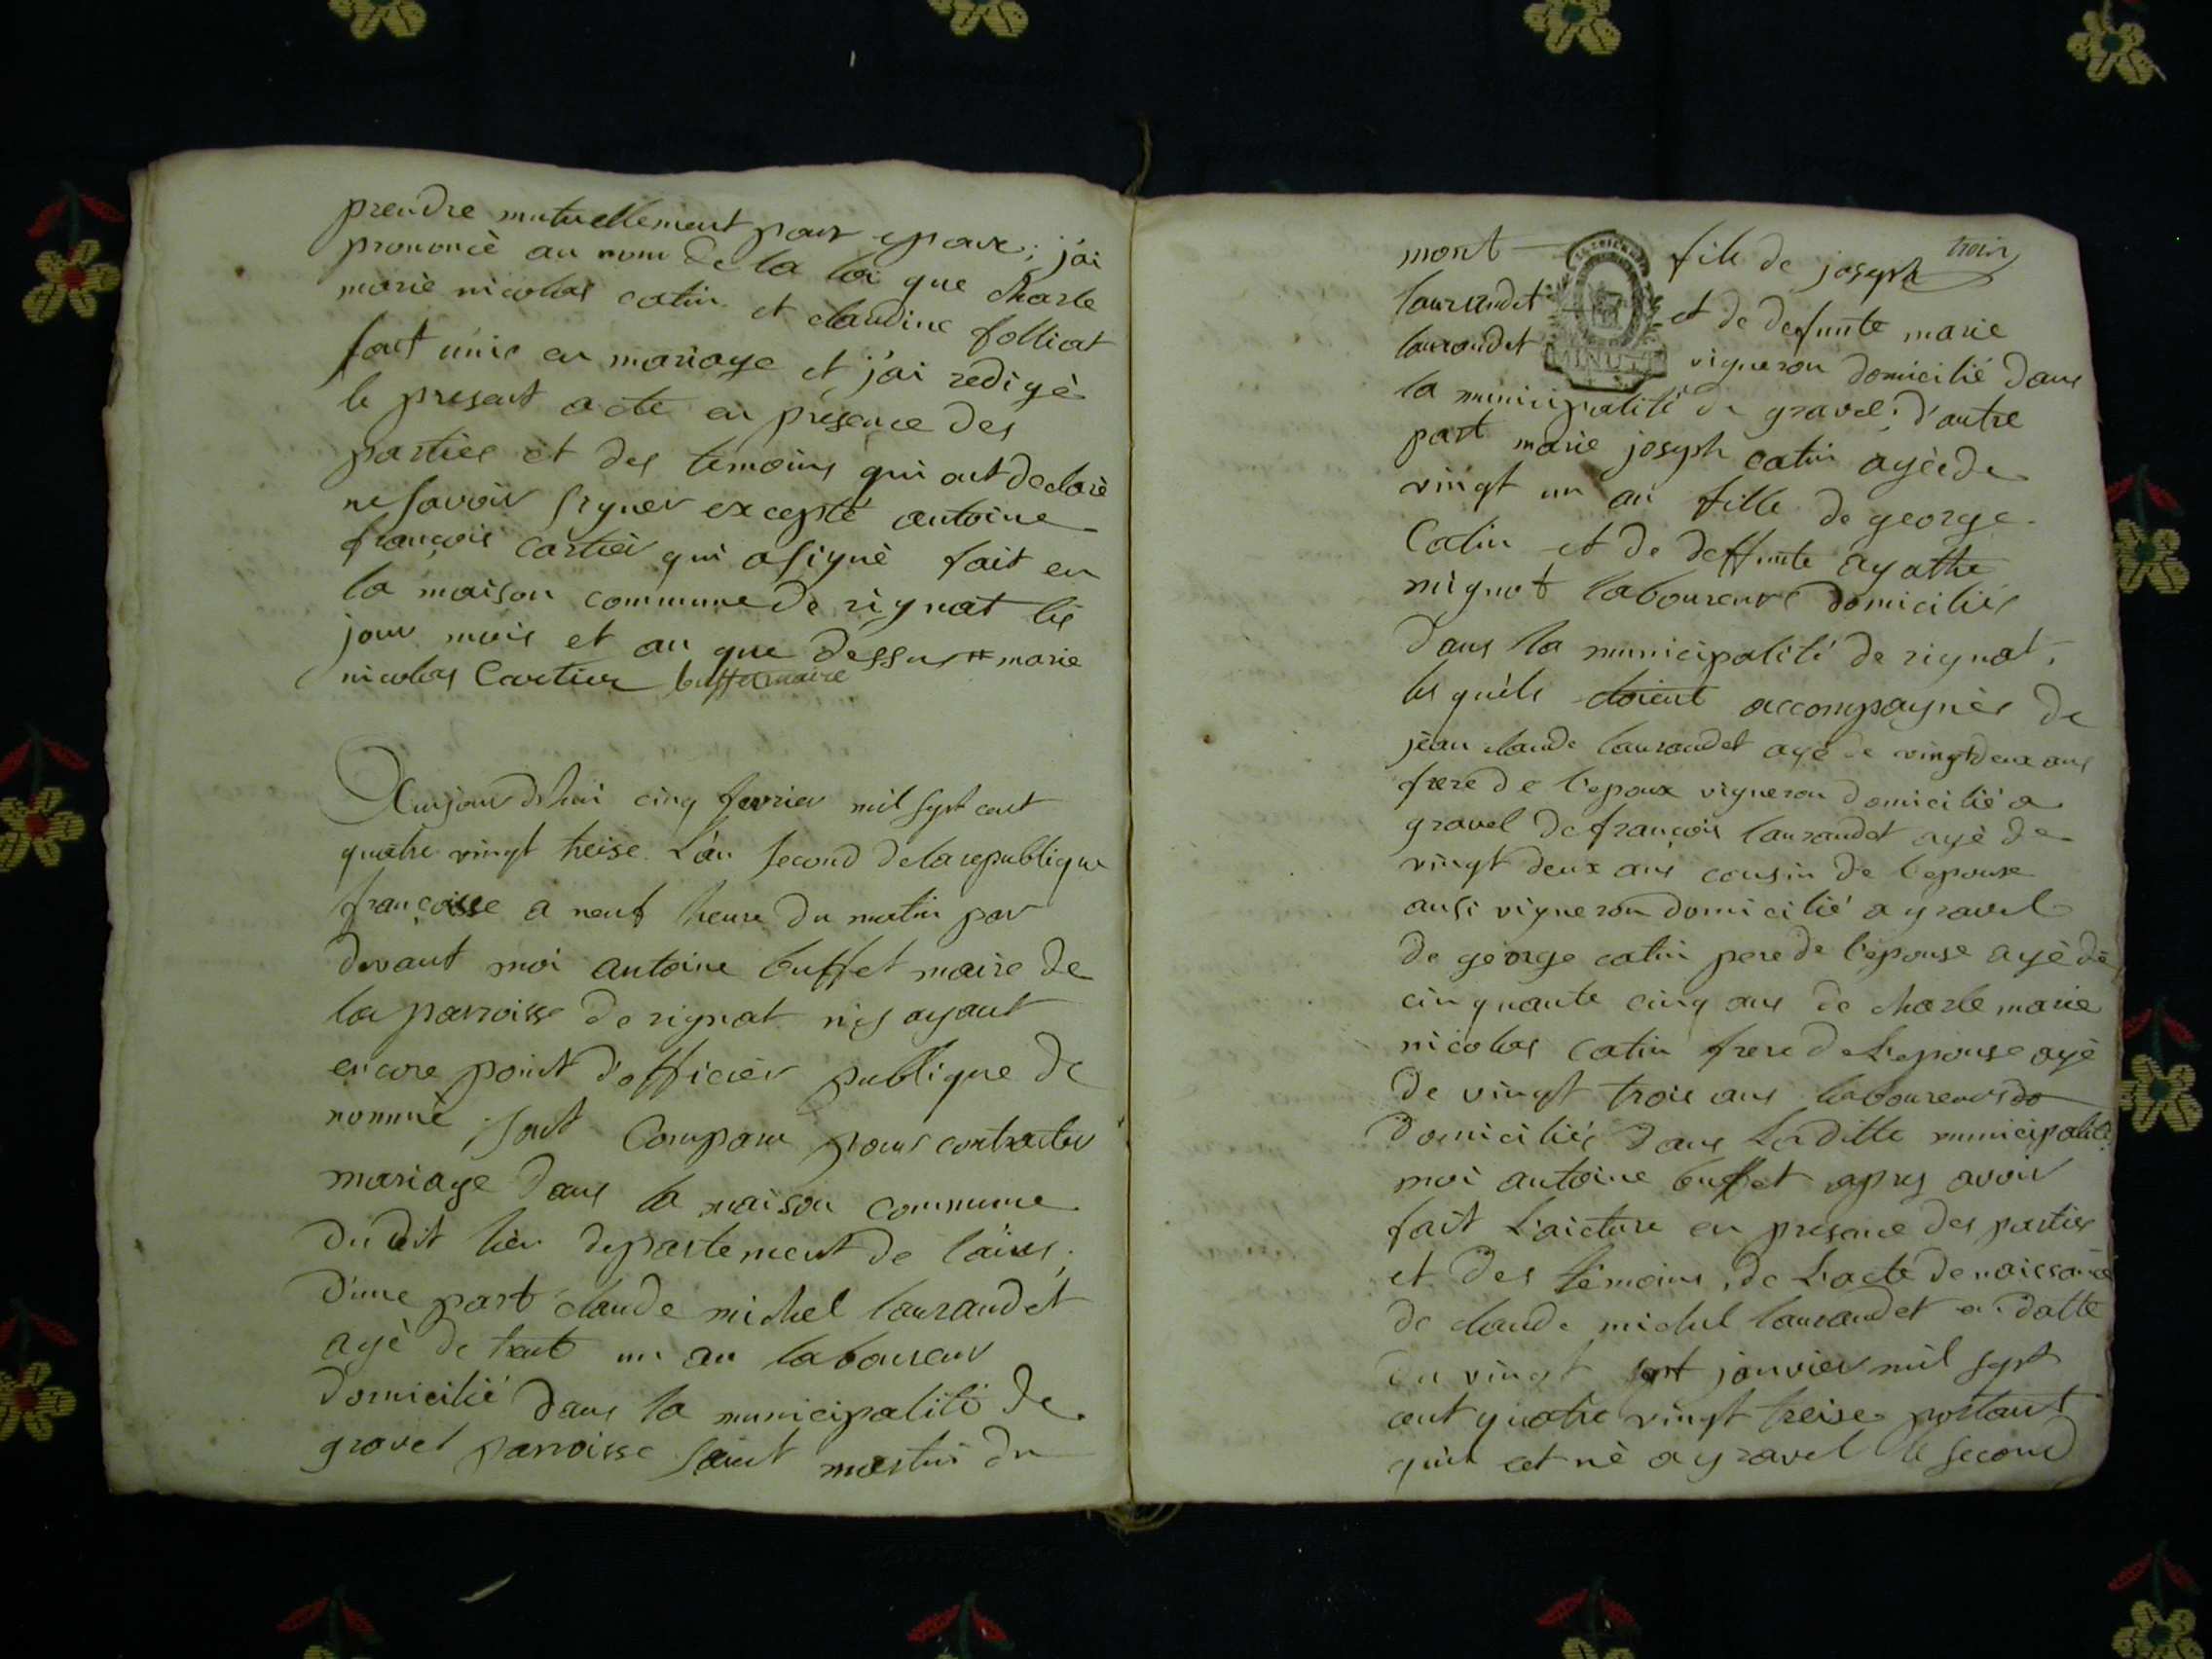 prendre mutuellement pour epoux; j'ai
prononcè au nom de la loi que charle
marie nicolas catin et claudine folliat
sont unis en mariage et j'ai redigè
le present acte en presence des
parties et des temoins qui ont declarè
ne savoir signer excepté antoine
françois cartier qui a signè fait en
la maison commune de rignat les
jour mois et an que dessus marie
nicolas Cartier buffet maire
Aujourdhui cinq fevrier mil sept cent
quatre vingt treise L'an second de la republique
françoisse a neuf heure du matin par
devant moi antoine buffet maire de
la parroisse de rignat n'y ayant
encore point d'officier publique de
nommè sont Comparu pour contracter
mariage dans la maison commune
du dit lieu departement de l'ains;
d'une part claude michel lauraudet
agè de trent un an laboureur
domicilié dans la municipalité de
gravel parroisse saint martin du
trois
mont fils de joseph
lauraudet et de defunte marie
lauraudet vigneron domicilié dans
MINUTE
la municipalité de gravel; d'autre
part marie joseph catin agèe de
vingt un an fille de george
Catin et de deffunte agathe
mignot laboureurs domiciliés
dans la municipalité de rignat,
lesquels étoient accompagnès de
jean claude lauraudet agè de vingt deux ans
frere de l'epoux vigneron domicilié a
gravel de françois lauraudet agè de
vingt deux ans cousin de l'epoux
ausi vigneron domicilié a gravel
de george catin pere de l'épouse agè de
cinquante cinq ans de charle marie
nicolas catin frere de L'epouse agè
de vingt trois ans laboureurs do
domiciliés dans Laditte municipalité
moi antoine buffet apres avoir
fait L'aicture en presence des parties
et des témoins, de L'acte de naissance
de claude michel lauraudet en datte
du vingt sept janvier mil sept
cent quatre vingt treise portant
qu'il est nè a gravel le second